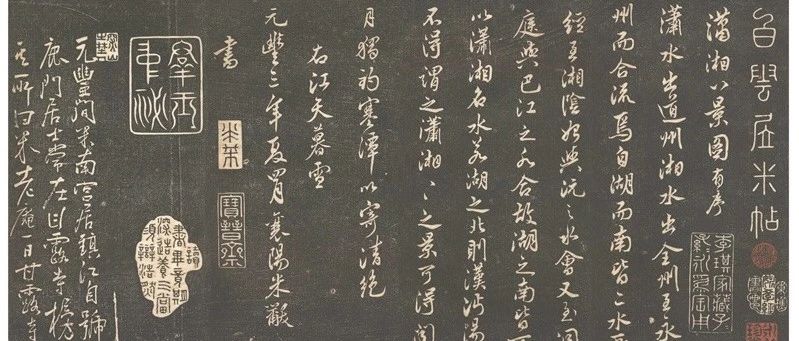 白雲居米帖
瀟湘八景圖 有序
瀟水出道州湘水出全州至永
州而合流焉自湖而南皆二水所
經至湘陰始與沅之水會又至洞
庭與巴江之水合故湖之南皆可
以瀟湘名水若湖之北則漢沔湯
不得謂之瀟湘〻之景可得聞
月獨釣寒潭以寄清絕
右江天暮雪
元豐三年夏四月襄陽米黻
書
米芾
寶晉齋
元豐間米南宮居鎮江自號
鹿門居士常在甘露寺榜
其所曰米老庵一日甘露寺